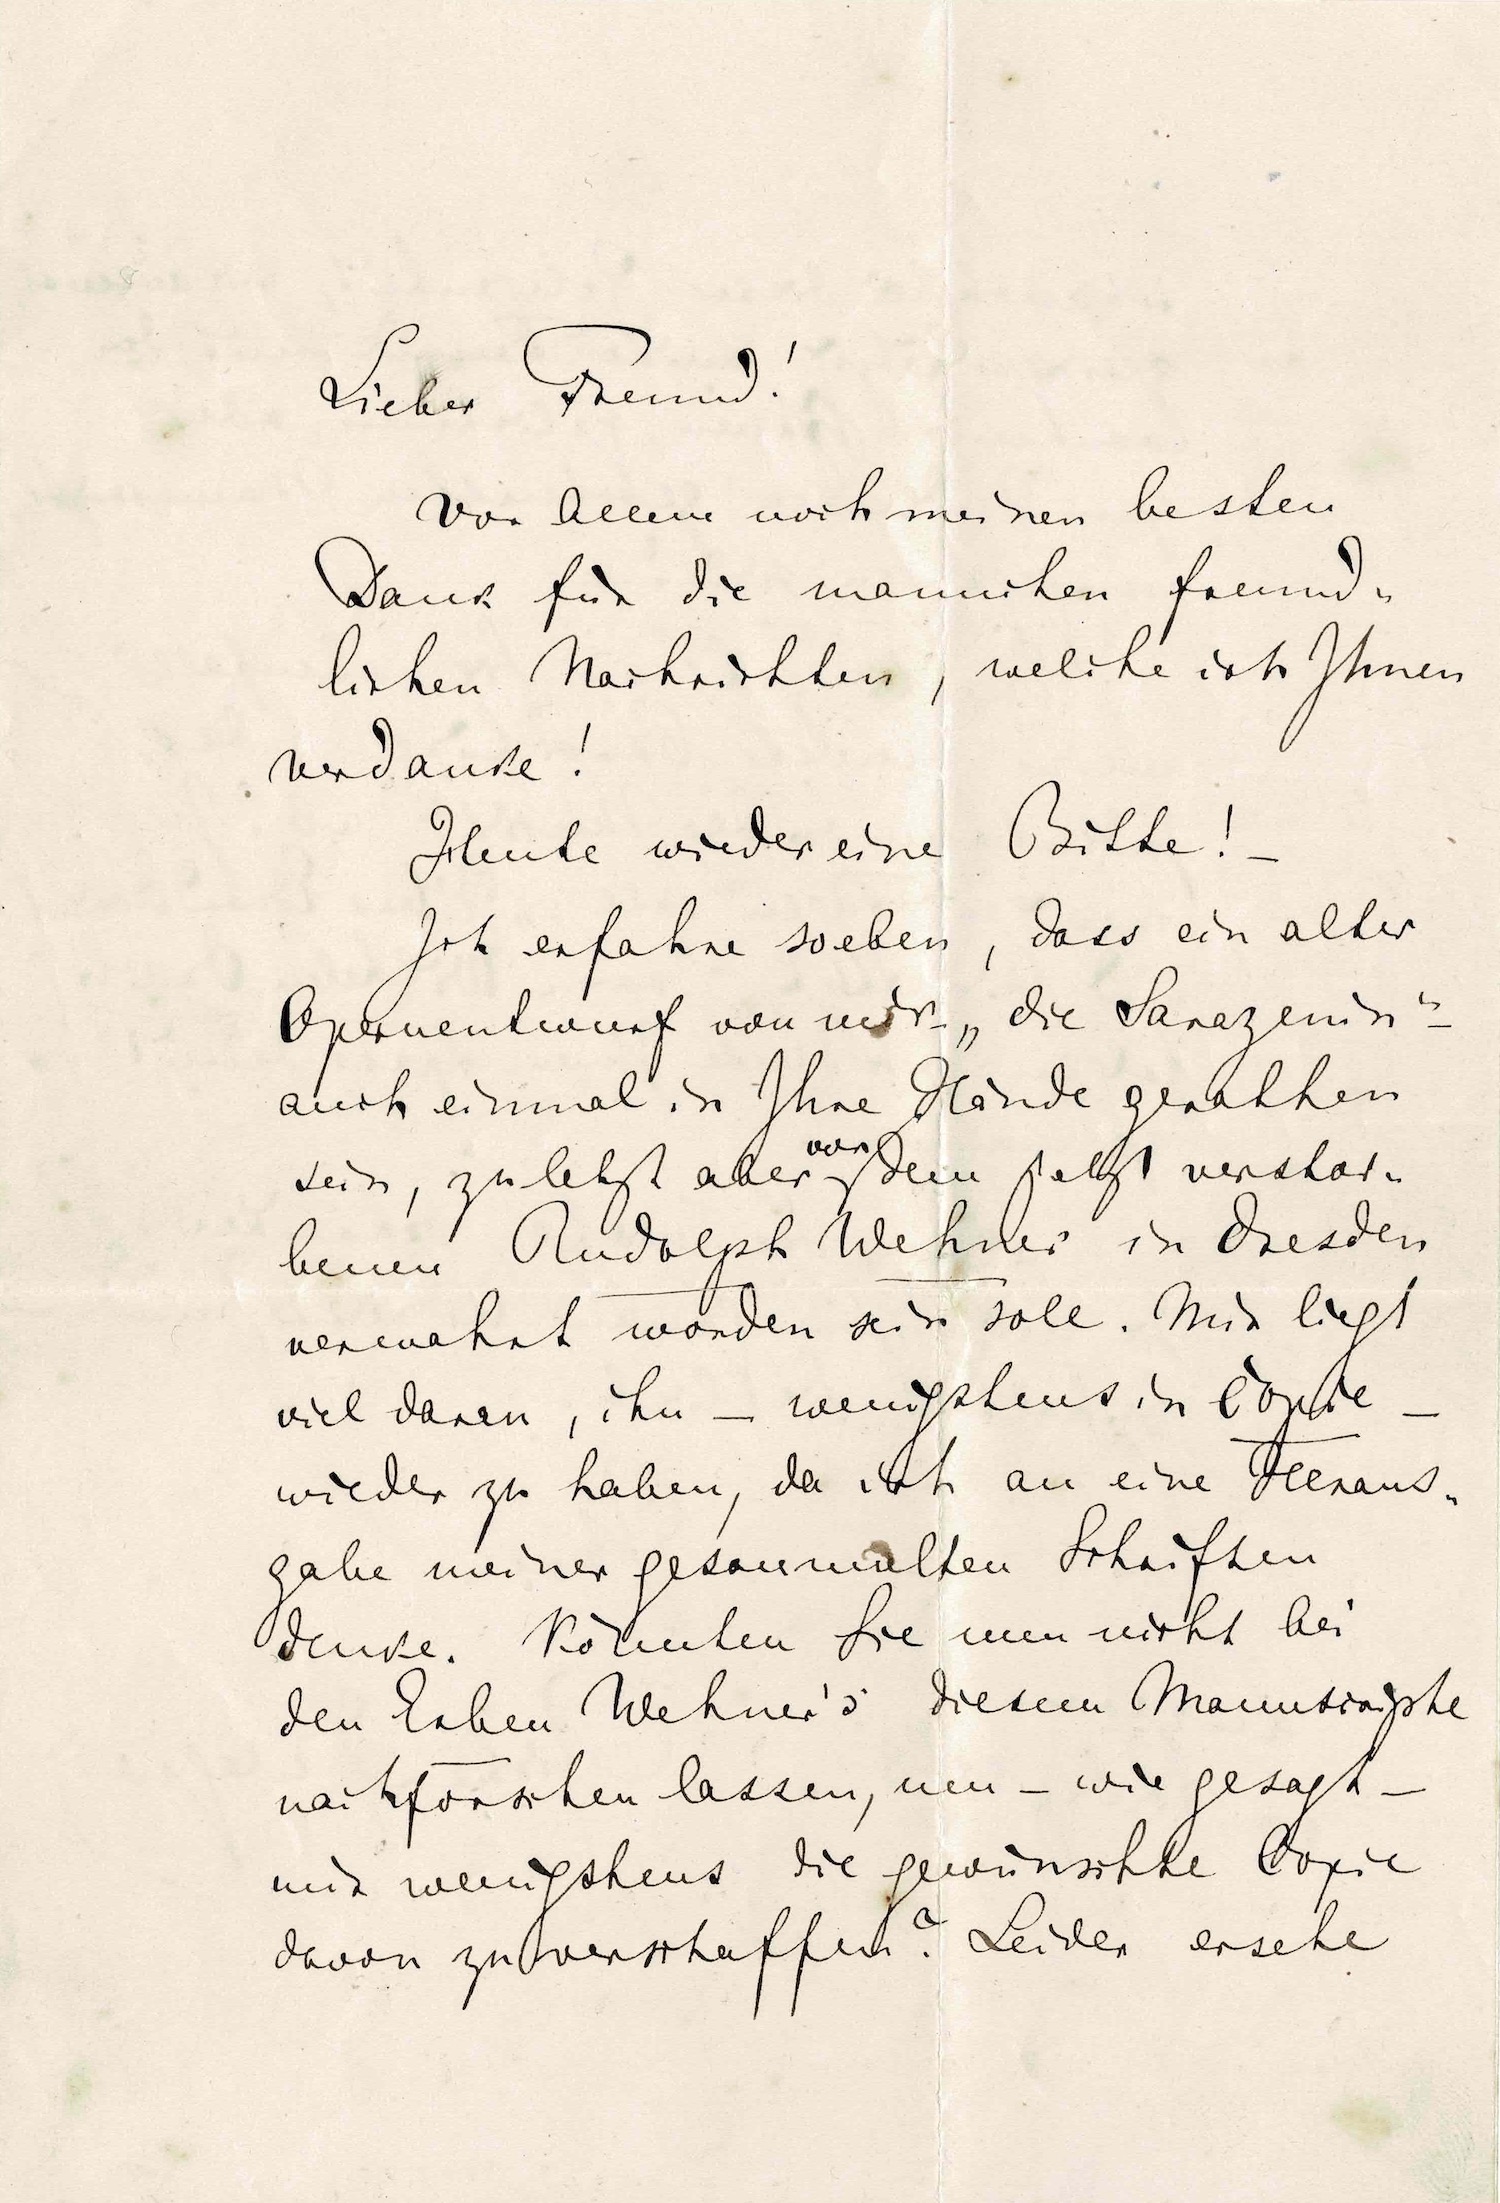 Lieber Freund!
Vor Allem noch meinen besten
Dank für die mannichen freund-
lichen Nachrichten, welche ich Ihnen
verdanke!
Heute wieder eine Bitte! –
Ich erfahre soeben, dass ein alter
Opernentwurf von mir – „die Sarazenin“ –
auch einmal in Ihre Hände gerathen
sein, zuletzt aber von dem jetzt verstor-
benen Rudolph Wehner in Dresden
verwahrt worden sein soll. Mir liegt
viel daran, ihn – wenigstens in Copie –
wieder zu haben, da ich an eine Heraus-
gabe meiner gesammelten Schriften
denke. Könnten Sie nun nicht bei
den Erben Wehner's diesem Manuscripte
nachforschen lassen, um – wie gesagt –
mir wenigstens die gewünschte Copie
davon zu verschaffen? Leider ersehe